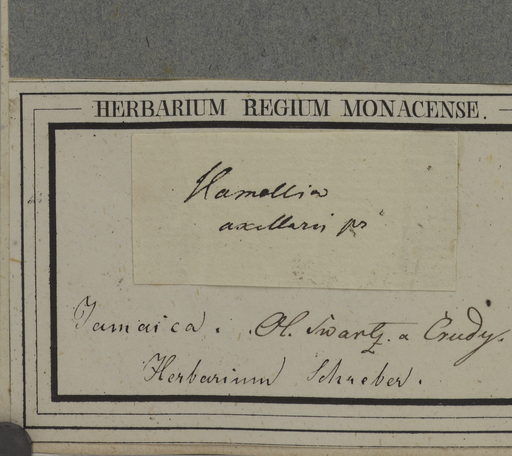 HERBARIUM REGIUM MONACENSE.
Hamellia
axillaris
Jamaica. Ol. Swartz. a Crudy.
Herbarium Schreber.